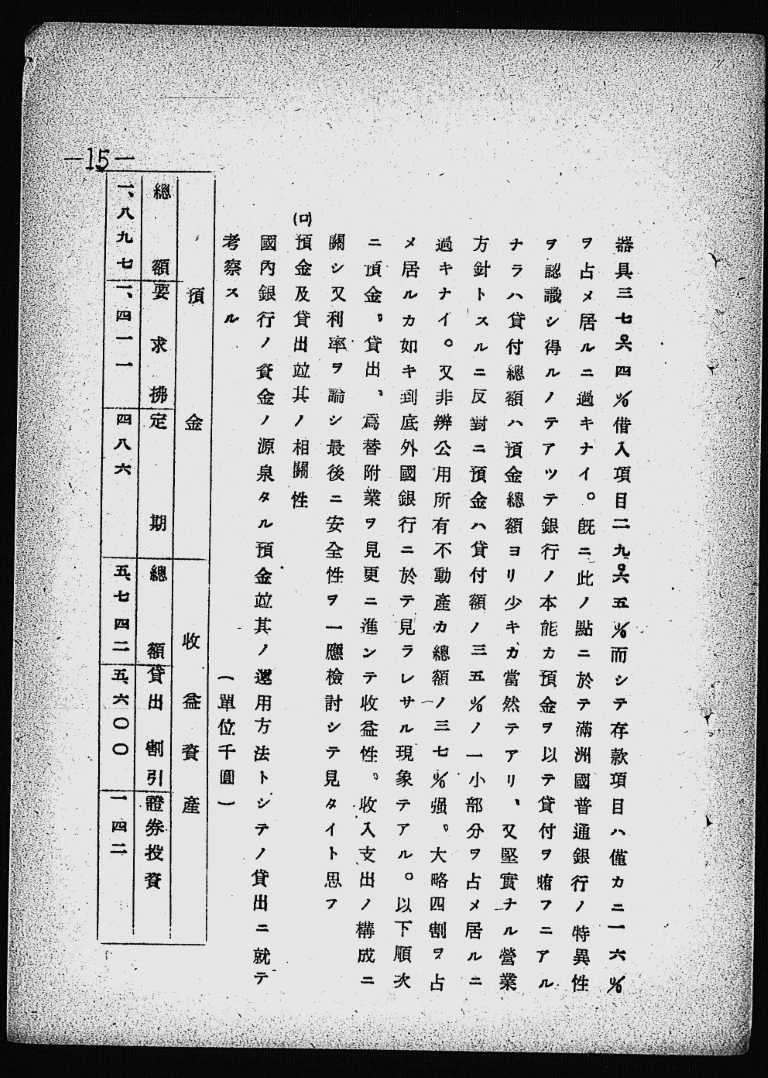 —15—
器具三七・六四％借入項目二九・六五％而シテ存款項目ハ僅カニ一六％
ヲ占メ居ルニ過キナイ。既ニ此ノ點ニ於テ滿洲國普通銀行ノ特異性
ヲ認識シ得ルノテアツテ銀行ノ本能カ預金ヲ以テ貸付ヲ賄フニアル
ナラハ貸付總額ハ預金總額ヨリ少キカ當然テアリ、又堅實ナル營業
方針トスルニ反對ニ預金ハ貸付額ノ三五％ノ一小部分ヲ占メ居ルニ
過キナイ。又非辨公用所有不動產カ總額ノ三七％强。大略四割ヲ占
メ居ルカ如キ到底外國銀行ニ於テ見ラレサル現象テアル。以下順次
ニ預金、貸出、爲替附業ヲ見更ニ進ンテ收益性。收入支出ノ構成ニ
關シ又利率ヲ論シ最後ニ安全性ヲ一應檢討シテ見タイト思フ
(ロ)預金及貸出竝其ノ相關性
國內銀行ノ資金ノ源泉タル預金竝其ノ運用方法トシテノ貸出ニ就テ
考察スル
(單位千圓)
預金 收益資產
總額 要求拂 定期 總額 貸出割引 證券投資
一、八九七 一、四一一 四八六 五、七四二 五、六〇〇 一四二